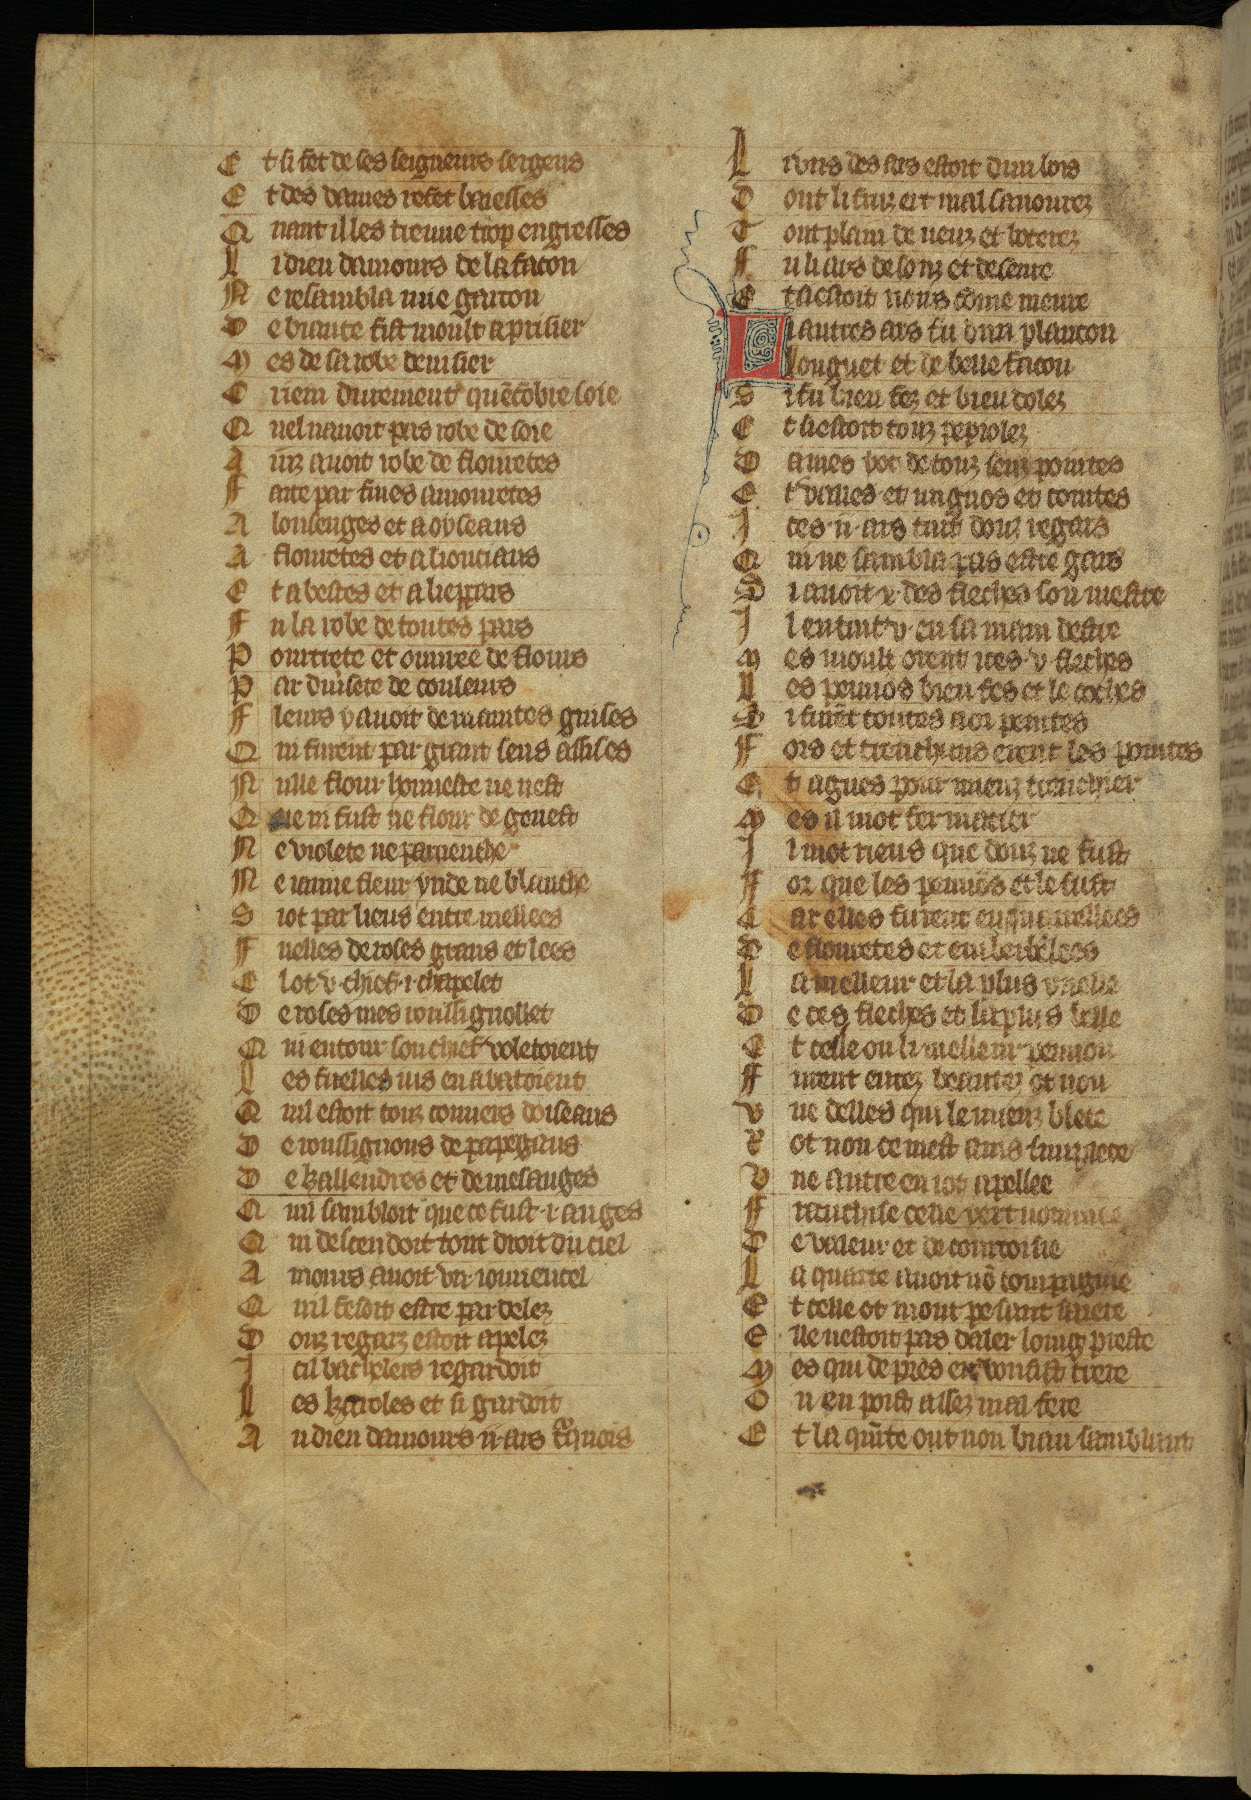 E t si fet de ses seigneurs sergens
E t des dames refet baiesses
Q uant il les treuue trop engresses
L i dieu damours de la facon
N e resambla mie garcon
D e biaute fist moult a prisier
M es de sa robe deuisier
C riem durement quēcōbre soie
Q uel nauoit pas robe de soie
A inz auoit robe de flouretes
F aite par fines amouretes
A losenges et a oyseaus
A flouretes et a lionciaus
E t a bestes et a liepars
F u la robe de toutes pars
P ourtrete et ouuree de flours
P ar diuersete de couleurs
F leurs y auoit de maintes guises
Q ui furent par grant sens assises
N ulle flour honneste ne nest
Q ue ni fust ne flour de genest
N e violete ne paruenche
N e iaune fleur ynde ne blanche
S iot par lieus entre mellees
F uelles de roses grans et lees
E l ot v chief .i. chapelet
D e roses mes roussignollet
Q ui entour son chief voletoient
L es fuelles ius en abatoient
Q uil estoit touz couuers doiseaus
D e roussignons de papegaus
D e kallendres et de mesanges
Q uil sambloit que ce fust .i. anges
Q ui descendoit tout droit du ciel
A mours auoit vn iouuencel
Q uil fesoit estre par delez
D ouz regarz estoit apelez
I cil bachelers regardoit
L es karoles et si gardoit
A u dieu damours .ii. ars turquois
L i vns des ars estoit dun bois
D ont li fruiz ert mal sauourez
T out plain de neuz et boterez
F u li ars desouz et deseure
E t si estoit noirs cōme meure
L i autres ars fu dun plancon
Longuet et de bele facon
S i fu bien fez et bien dolez
E t si estoit touz pepiolez
D ames vot de touz senz pointes
E t vallés et mignos et cointes
I ces .ii. ars tint douz regars
Q ui ne sambla pas estre gars
S i auoit .x. des fleches son mestre
I l en tint .v. en sa main destre
M es moult orent ices .v. fleches
L es pennōs bien fes et le coches
S i furēt toutes a or peintes
F ors et trenchans erent les pointes
E t agues pour mieuz trenchier
M es il niot fer ne acier
I l niot riens que dorz ne fust
F or que les pennōs et le fust
C ar elles furent enquarrellees
D e flouretes et enherbelees
L a meilleur et la plus ynelle
D e ces fleches et la plus belle
E t celle ou li meilleur pennon
F urent entez beautez ot non
V ne delles qui le mieuz blece
R ot non ce mest auis simplece
V ne autre en iot apellee
F ranchise celle yert nommee
D e valeur et de courtoisie
L a quarte auoit nō compaignie
E t celle ot mout pesant saiete
E lle nestoit pas daler loing preste
M es qui de pres en vousist trere
O n en poist assez mal fere
E t la quīte out non biau samblant